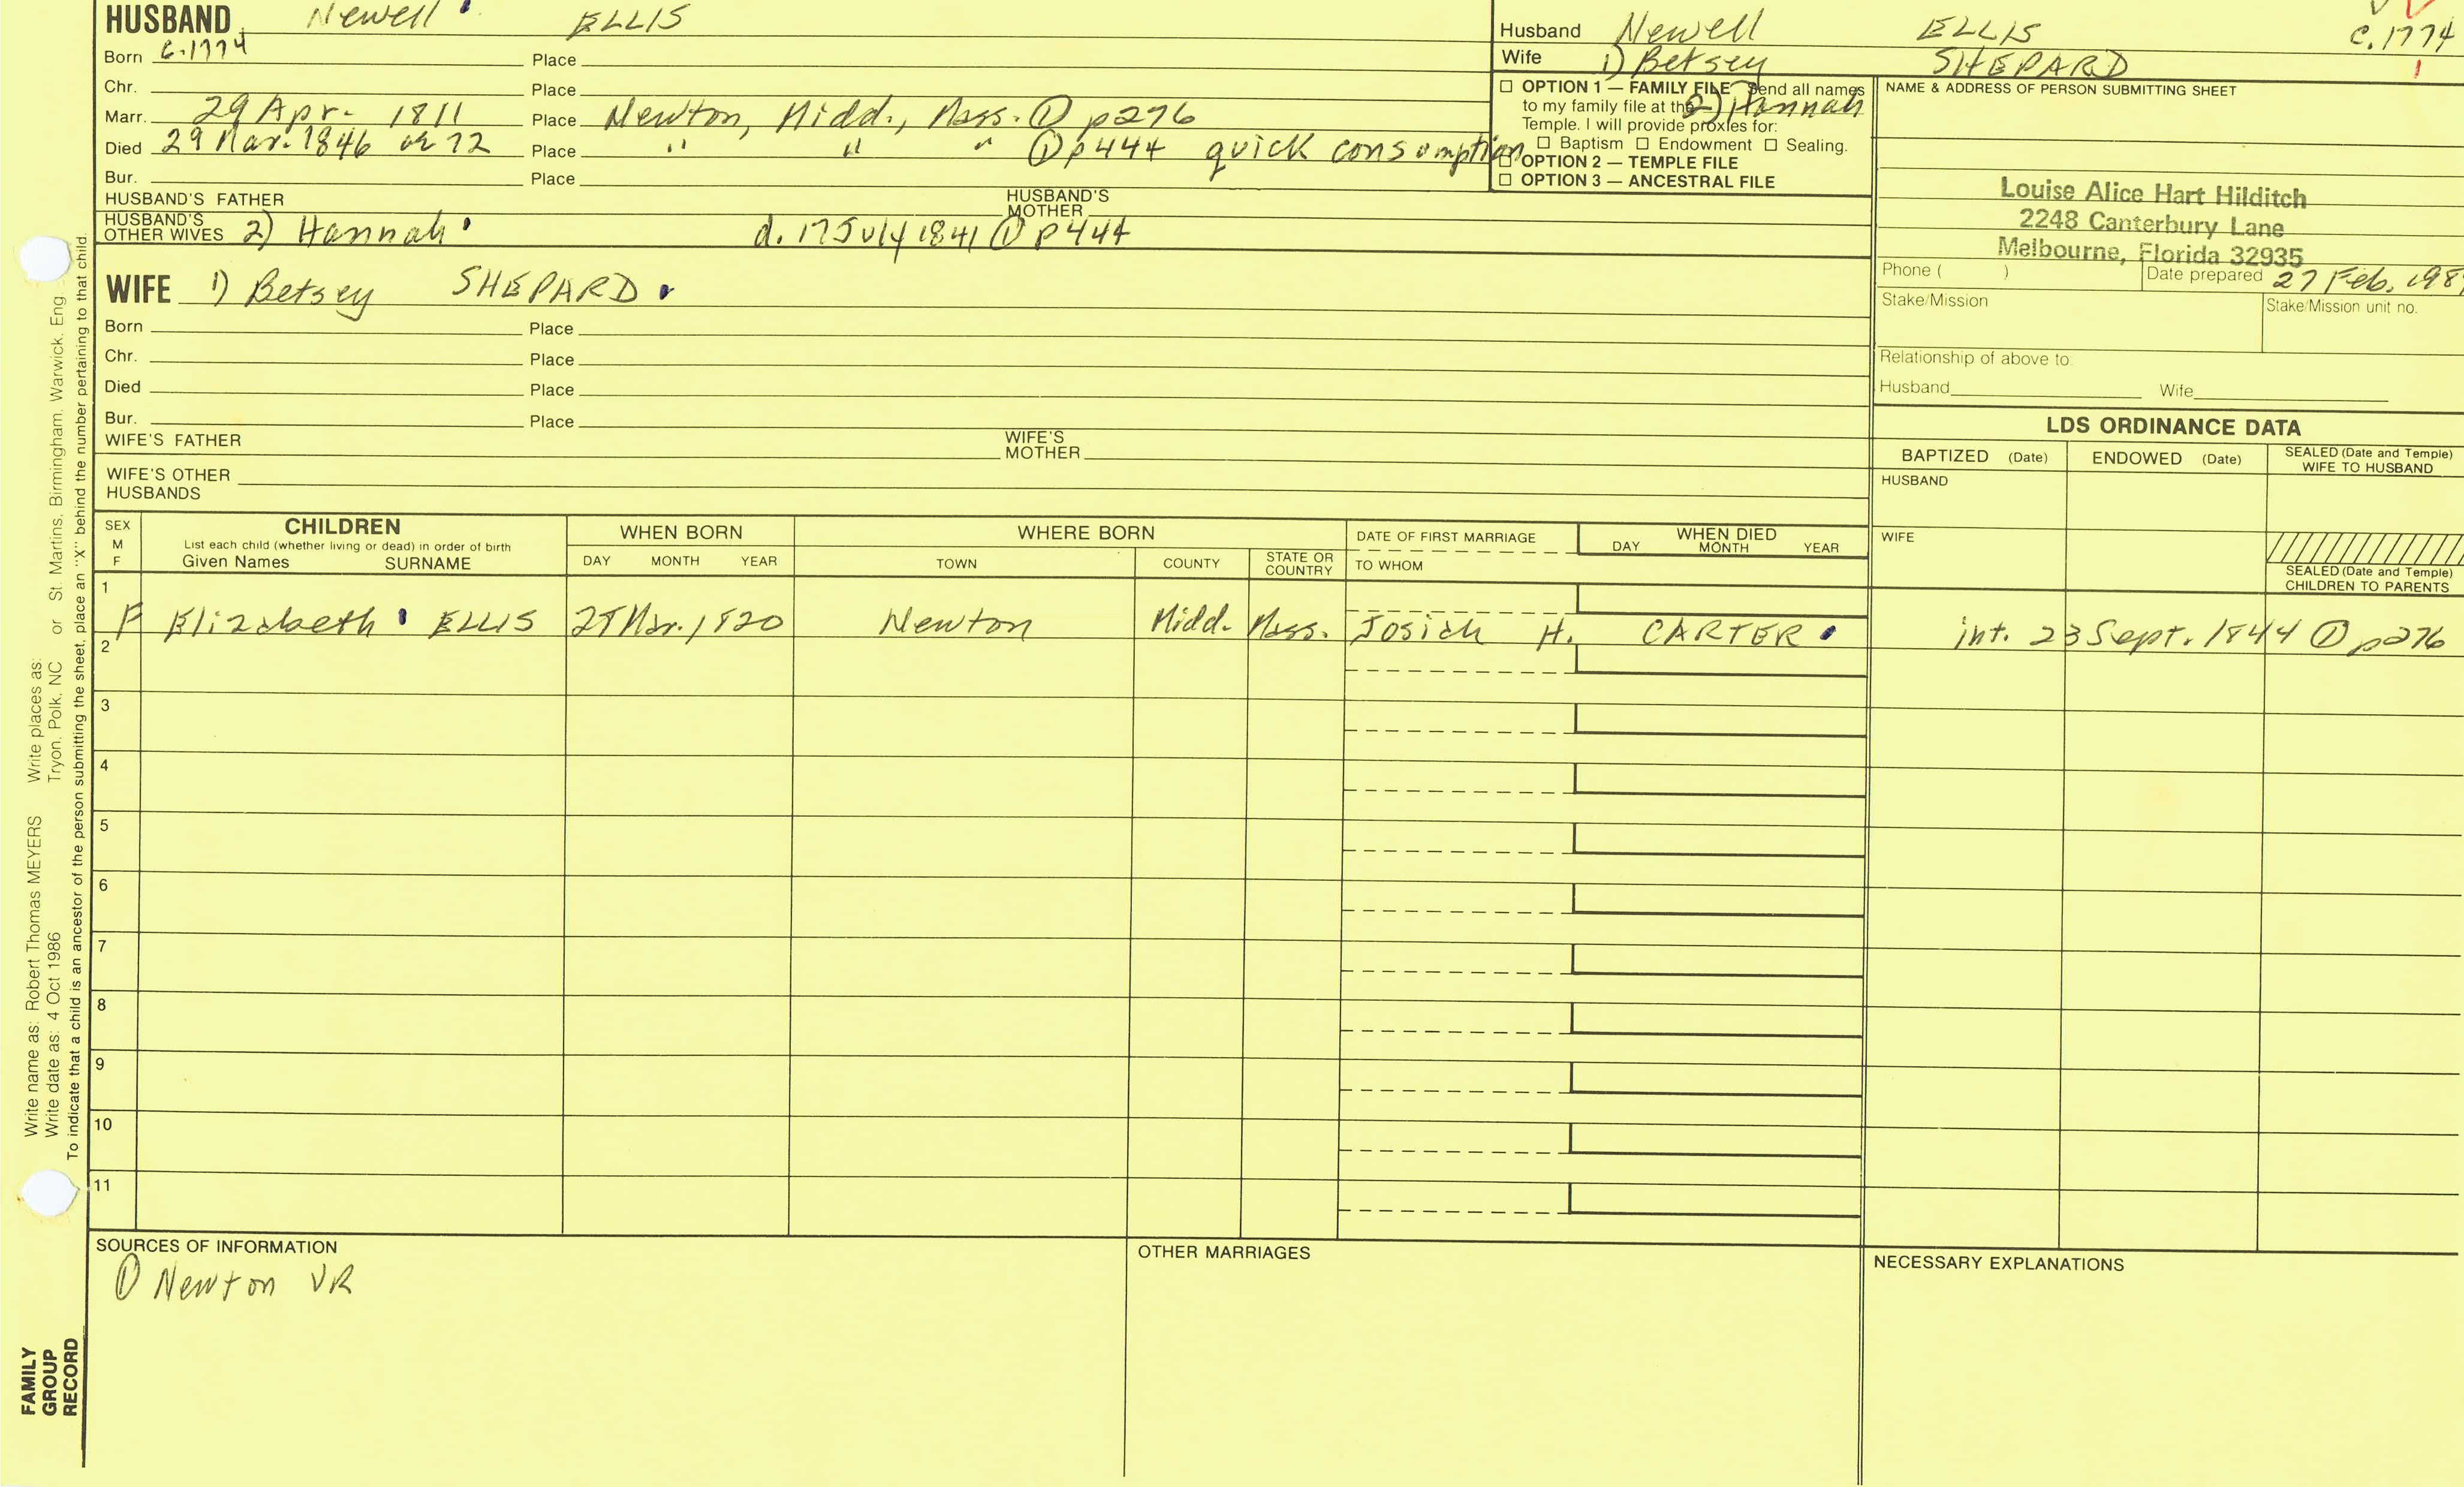 HUSBAND Newell ELLIS
Born c.1774 Place
Chr. Place
Marr. 29 Apr. 1811 Place Newton, Midd., Mass. ① p276
Died 29 Mar. 1846 ae 72 Place " " " ① p444 quick consumption
Bur. Place
HUSBAND'S FATHER HUSBAND'S MOTHER
HUSBAND'S OTHER WIVES 2) Hannah d. 17 July 1841 ① p444
Husband Newell ELLIS c.1774
Wife 1) Betsey SHEPARD 1
2) Hannah
☐ OPTION 1 — FAMILY FILE Send all names
to my family file at the
Temple. I will provide proxies for:
☐ Baptism ☐ Endowment ☐ Sealing.
☐ OPTION 2 — TEMPLE FILE
☐ OPTION 3 — ANCESTRAL FILE
NAME & ADDRESS OF PERSON SUBMITTING SHEET
Louise Alice Hart Hilditch
2248 Canterbury Lane
Melbourne, Florida 32935
Phone ( ) Date prepared 27 Feb.
Stake/Mission Stake/Mission unit no.
Relationship of above to:
Husband Wife
WIFE 1) Betsey SHEPARD
Born Place
Chr. Place
Died Place
Bur. Place
WIFE'S FATHER WIFE'S MOTHER
WIFE'S OTHER HUSBANDS
LDS ORDINANCE DATA
BAPTIZED (Date) ENDOWED (Date) SEALED (Date and Temple) WIFE TO HUSBAND
HUSBAND
WIFE
SEALED (Date and Temple) CHILDREN TO PARENTS
SEX M F
CHILDREN
List each child (whether living or dead) in order of birth
Given Names SURNAME
WHEN BORN
DAY MONTH YEAR
WHERE BORN
TOWN COUNTY STATE OR COUNTRY
DATE OF FIRST MARRIAGE
TO WHOM
WHEN DIED
DAY MONTH YEAR
1
F Elizabeth ELLIS Mar. 1820 Newton Midd. Mass. Josiah H. CARTER int. 23 Sept. 1844 ① p276
2
3
4
5
6
7
8
9
10
11
SOURCES OF INFORMATION
① Newton VR
OTHER MARRIAGES
NECESSARY EXPLANATIONS
Write name as: Robert Thomas MEYERS Write places as:
Write date as: 4 Oct 1986 Tryon, Polk, NC or St. Martins, Birmingham, Warwick, Eng.
To indicate that a child is an ancestor of the person submitting the sheet, place an "X" behind the number pertaining to that child.
FAMILY
GROUP
RECORD